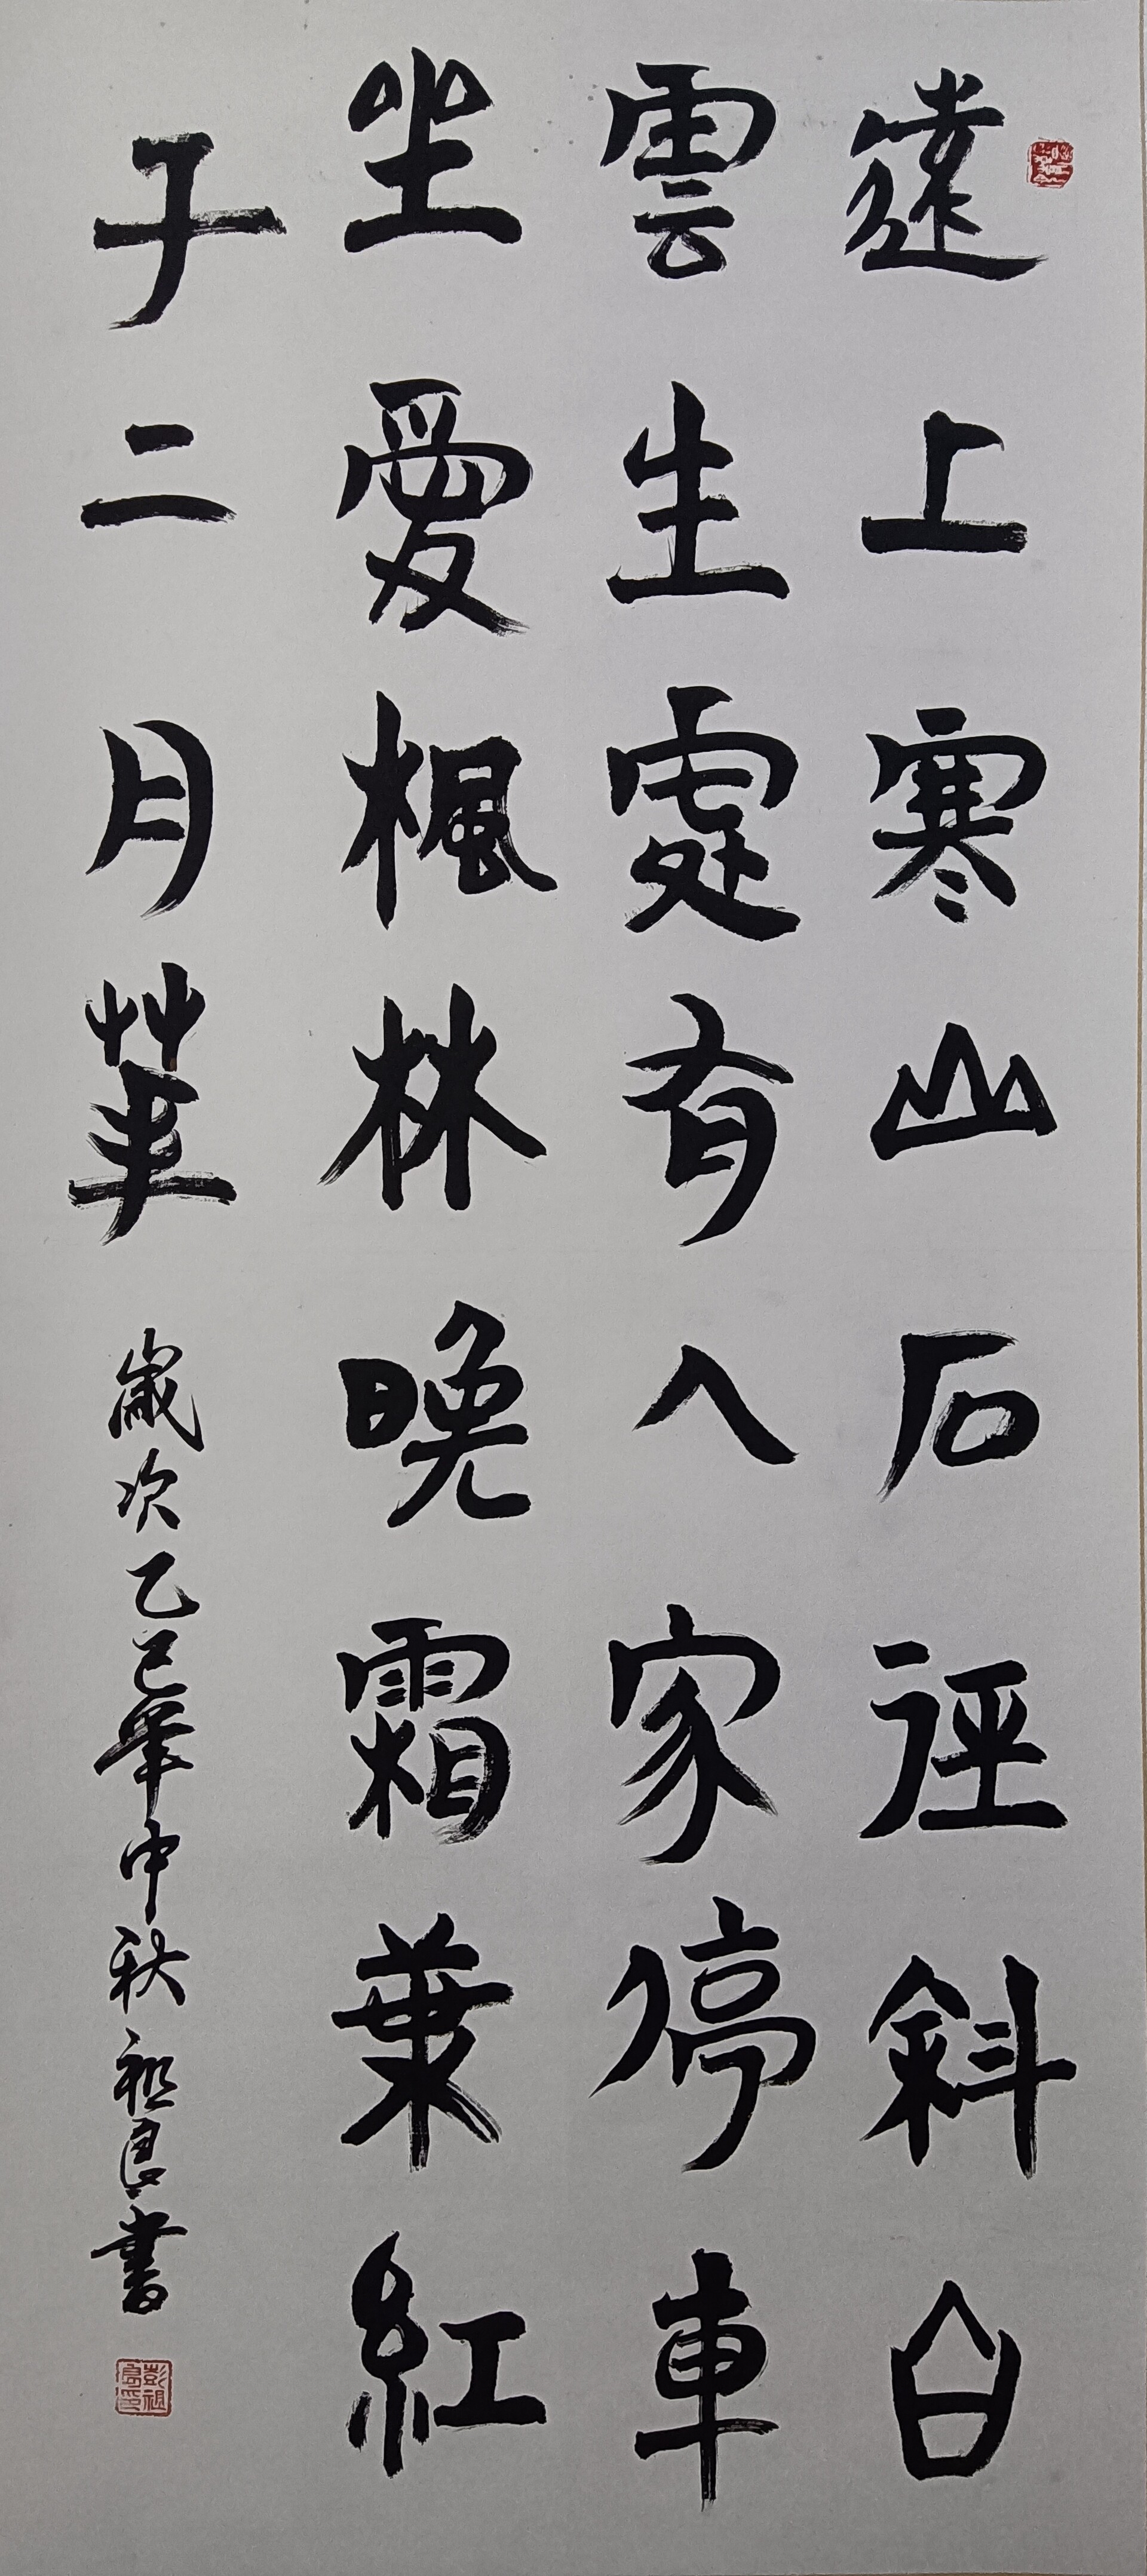 遠上寒山石徑斜白
雲生處有人家停車
坐愛楓林晚霜葉紅
于二月華 歲次乙巳年中秋祖良書
彭祖良印